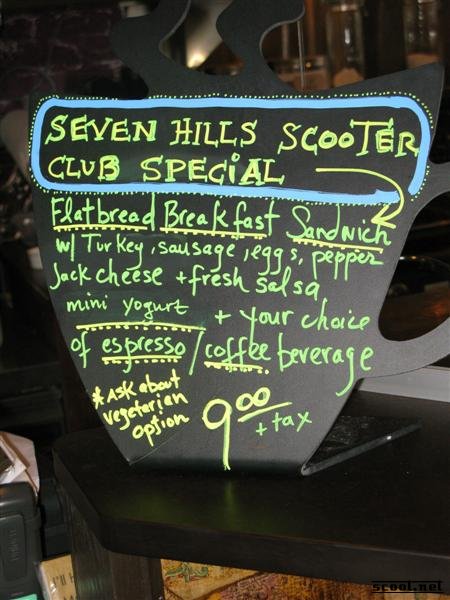 SEVEN HILLS SCOOTER
CLUB SPECIAL
Flatbread Breakfast Sandwich
w/ Turkey, sausage, eggs, pepper
Jack cheese + fresh salsa
mini yogurt + your choice
of espresso/coffee beverage
*ASK about
vegetarian
option
9.00
+ tax
scoot.net